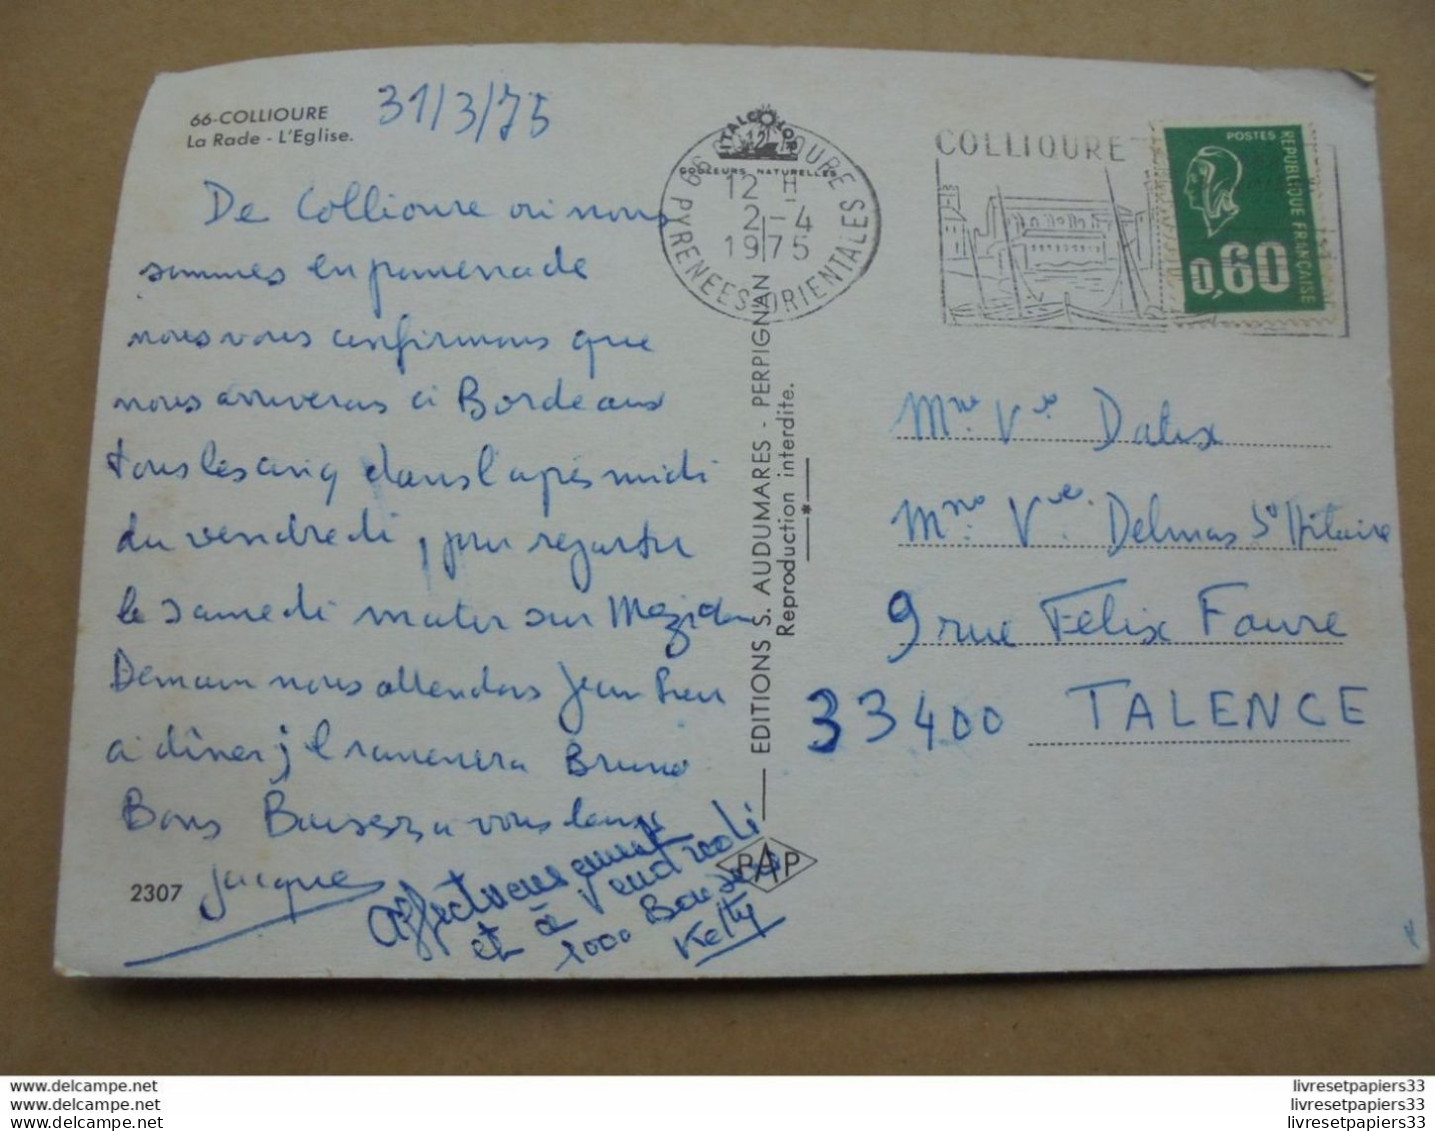 66-COLLIOURE
La Rade - L'Eglise.
31/3/75
De Collioure où nous
sommes en promenade
nous vous confirmons que
nous arriverons à Bordeaux
tous les cinq dans l'après midi
du vendredi, pour repartir
le samedi matin sur Mézidon
Demain nous attendons Jean Pierre
à dîner, il ramenera Bruno
Bons Baisers à vous tous
Jacques
Affectueusement
et à Vendredi
1000 Baisers
Kelty
2307
ITALCOLOR
COULEURS NATURELLES
66 COLLIOURE
12 H
2-4
1975
PYRENEES-ORIENTALES
EDITIONS S. AUDUMARES - PERPIGNAN
Reproduction interdite.
PAP
COLLIOURE
POSTES
REPUBLIQUE FRANÇAISE
0,60
Mme Vve Dalix
Mme Vve Delmas St Hilaire
9 rue Félix Faure
33400 TALENCE
www.delcampe.net
www.delcampe.net
www.delcampe.net
livresetpapiers33
livresetpapiers33
livresetpapiers33